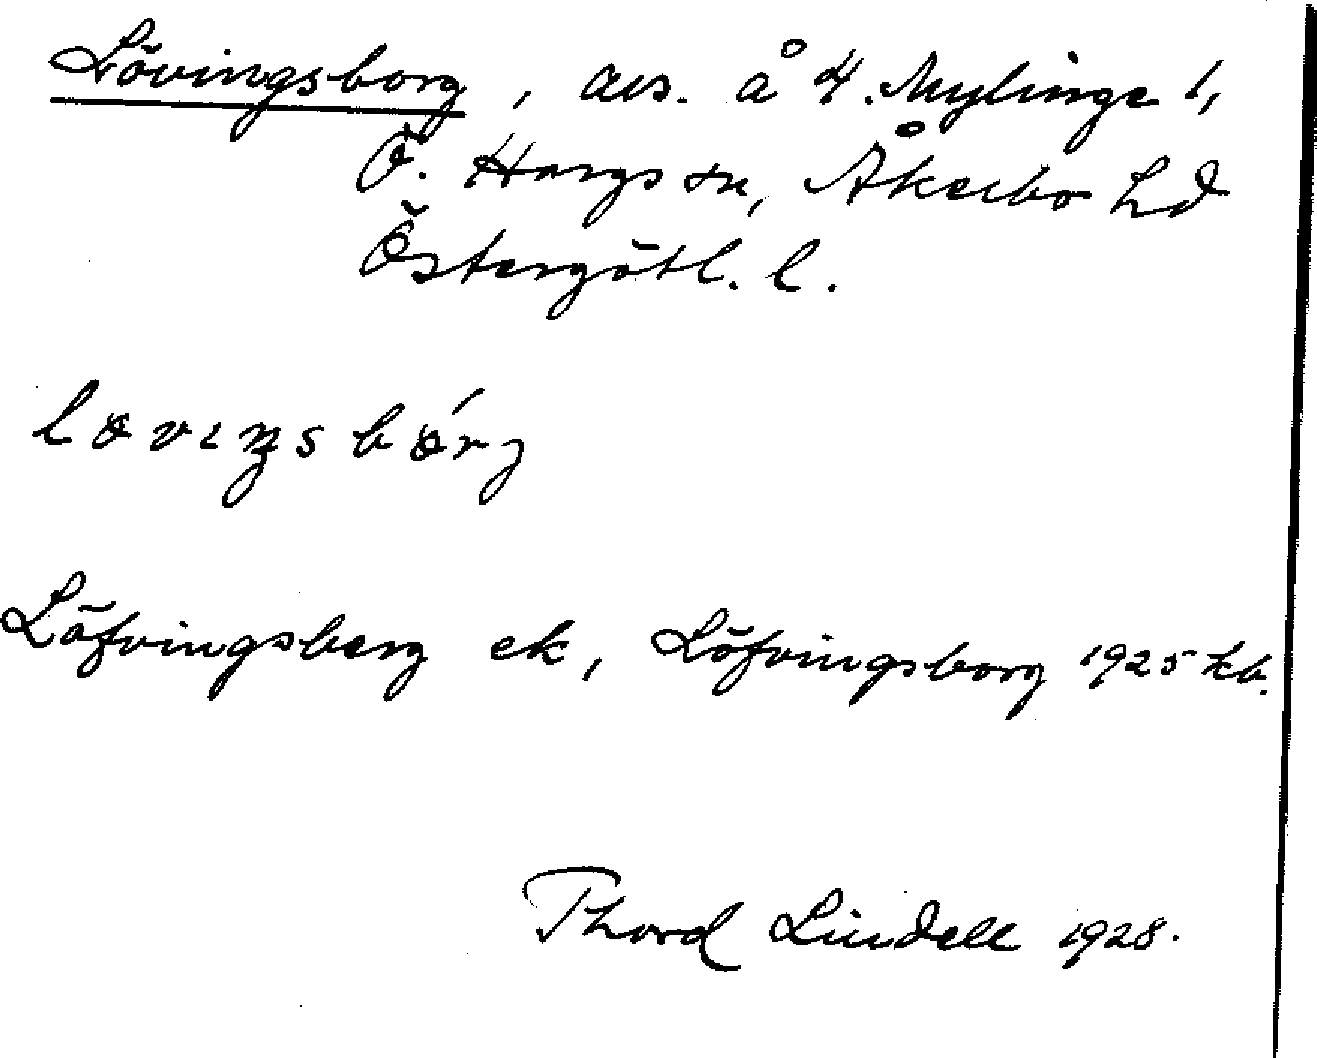 Lövingsborg, avs. å N. Mylinge 1,
Ö. Hargs sn, Åkerbo hd
Östergötl. l.
Löfvingsberg ek, Löfvingsborg 1925 kb.
Thord Lindell 1928.